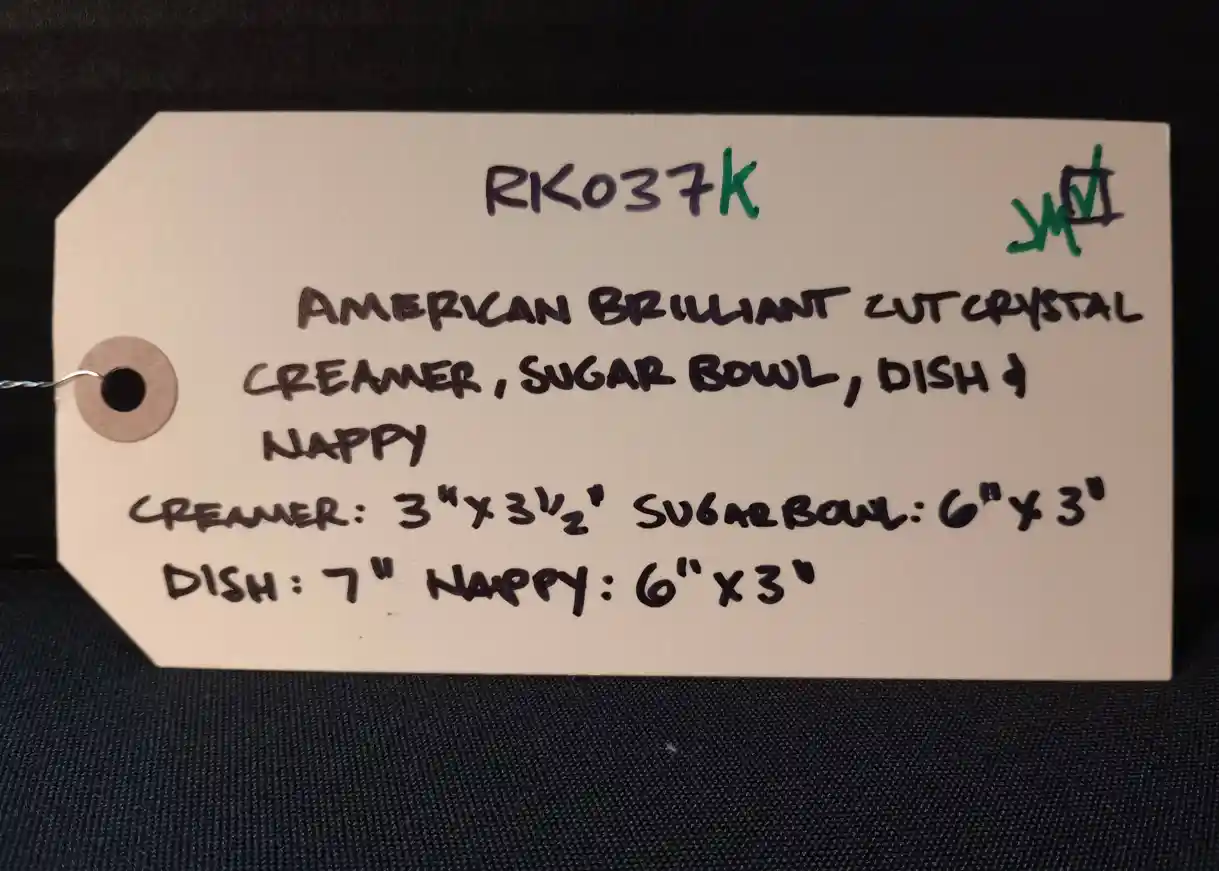 RK037K
JM
AMERICAN BRILLIANT CUT CRYSTAL
CREAMER, SUGAR BOWL, DISH &
NAPPY
CREAMER: 3" X 3 1/2" SUGAR BOWL: 6" X 3"
DISH: 7" NAPPY: 6" X 3"